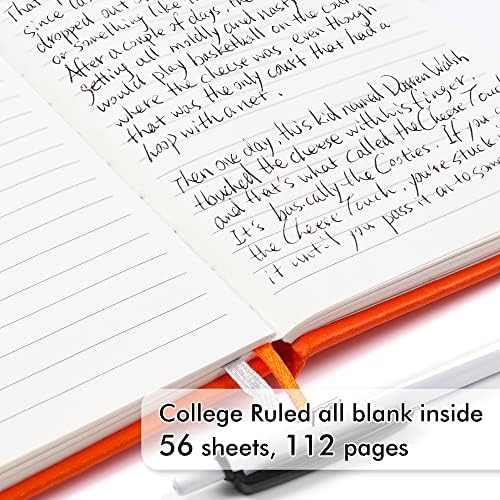 That
since
dropped out o
or something like
After a couple of days, the
getting all moldly and nasty
would play basketball on the cour
where the cheese was, even though
that was the only court that had a
hoop with a net.
Then one day, this kid named Darren Walsh
touched the cheese with his finger,
and that's what called the Cheese Touch
It's basically the Cooties. If you
the Cheese Touch, you're stuck
it until you pass it on to some
College Ruled all blank inside
56 sheets, 112 pages